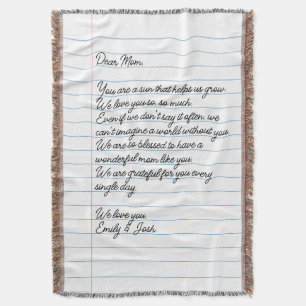 Dear Mom,
You are a sun that helps us grow.
We love you so, so much.
Even if we don't say it often, we
can't imagine a world without you.
We are so blessed to have a
wonderful mom like you.
We are grateful for you every
single day.
We love you,
Emily & Josh